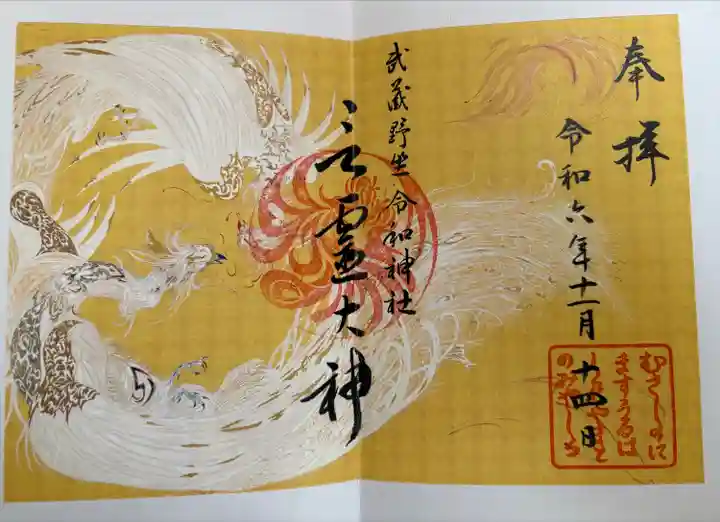 奉拝
令和六年十一月十四日
むさしのに
ますうるは
しき
のみやしろ
武蔵野坐令和神社
言霊大神